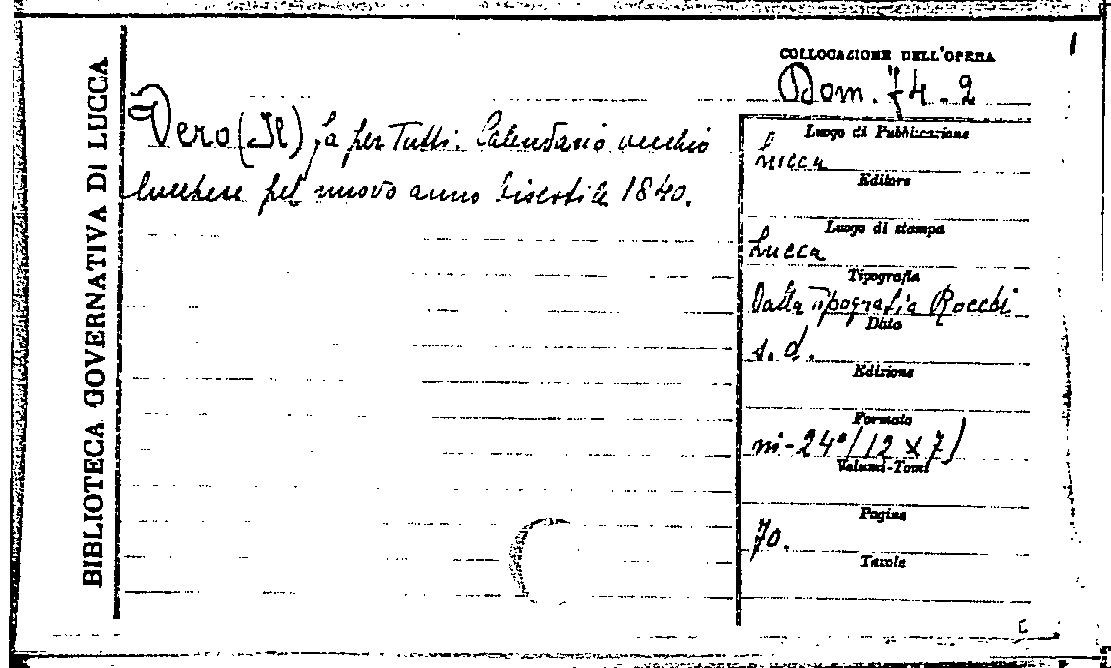 BIBLIOTECA GOVERNATIVA DI LUCCA
COLLOCAZIONE DELL'OPERA
Dom. 74.2
Vero (Il) fa per Tutti: Calendario vecchio
lucchese pel nuovo anno bisestile 1840.
Luogo di Pubblicazione
Lucca
Editore
Luogo di stampa
Lucca
Tipografia
Dalla Tipografia Rocchi
Data
s. d.
Edizione
Formato
in-24° (12 x 7)
Volumi-Tomi
Pagine
70.
Tavole